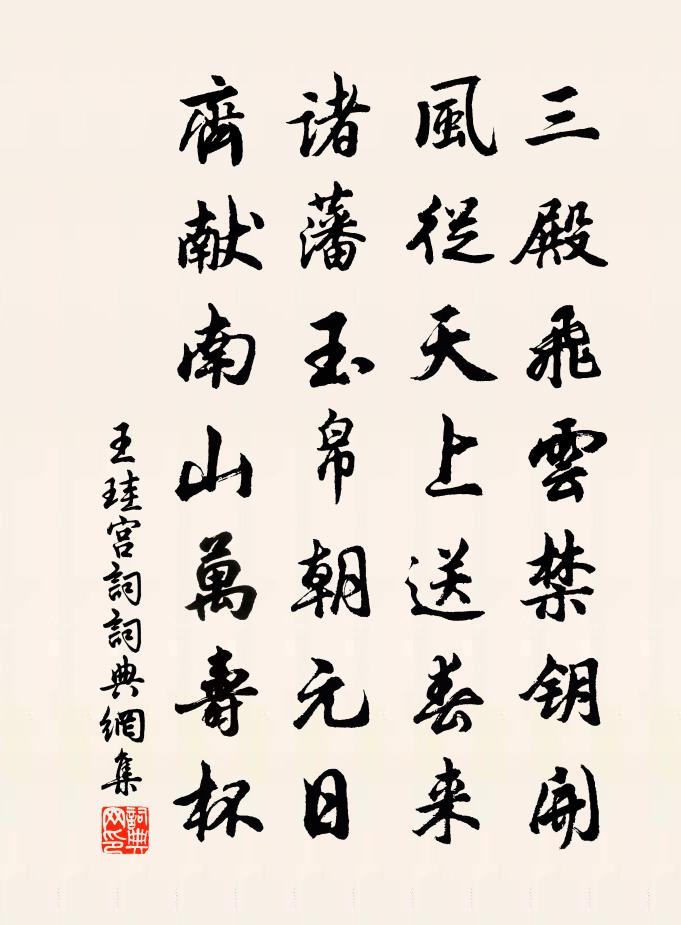 三殿飛雲禁钥開
風從天上送春来
诸藩玉帛朝元日
齊献南山萬壽杯
王珪宫詞詞典網集
詞典網印